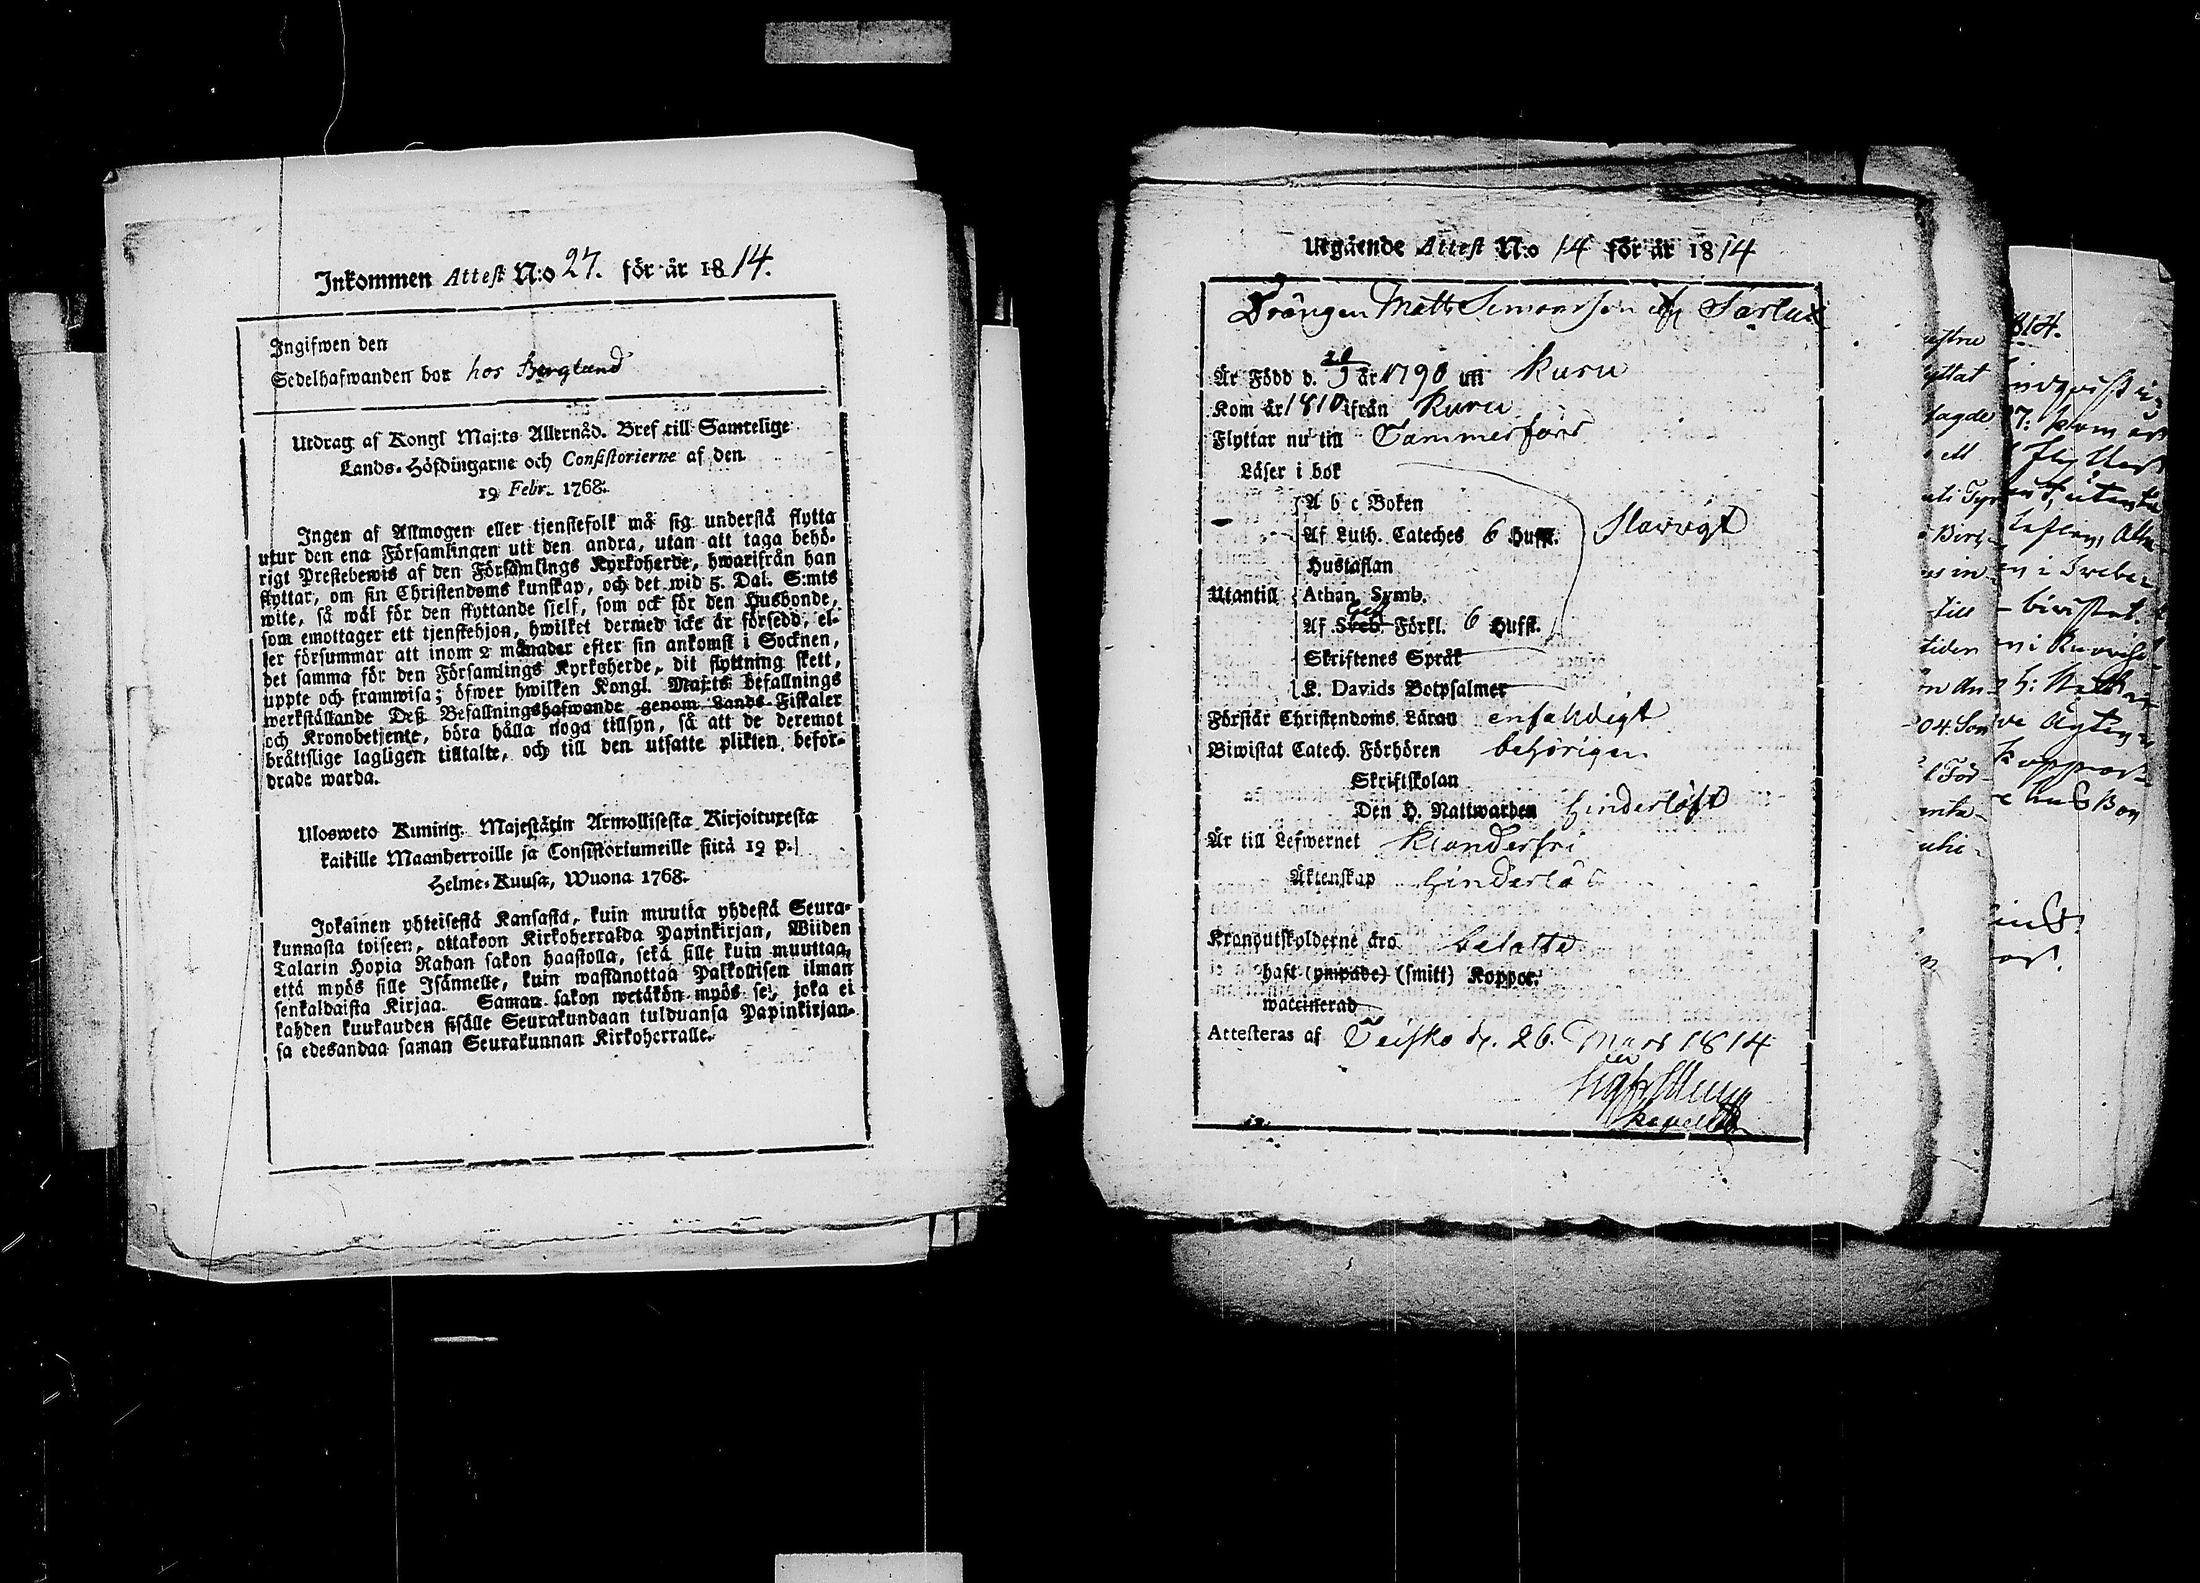 Inkommen Attest N:o 27. för år 1814.
Ingifwen den
Sedelhafwanden bor hos Berglund
Utdrag af Kongl Maj:ts Allernåd. Bref till Samtelige
Lands-Höfdingarne och Consistorierne af den
19 Febr. 1768.
Ingen af Allmogen eller tjenstefolk må sig understå flytta
utur den ena Församlingen uti den andra, utan att taga behö-
rigt Prestebewis af den Församlings Kyrkoherde, hwarifrån han
flyttar, om sin Christendoms kunskap, och det wid 5. Dal. S:mts
wite, så wäl för den flyttande sjelf, som ock för den Husbonde,
som emottager ett tjenstehjon, hwilket dermed icke är försedd, el-
ler försummar att inom 2 månader efter sin ankomst i Socknen,
det samma för den Församlings Kyrkoherde, dit flyttning skett,
uppte och framwisa; öfwer hwilken Kongl. Maj:ts befallnings
werkställande Deß Befallningshafwande genom Lands-Fiskaler
och Kronobetjente, böra hålla noga tillsyn, så att de deremot
bråttslige lagligen tilltalte, och till den utsatte plikten befor-
drade warda.
Ulosweto Kuning. Majestätin Armollisesta Kirjoituxesta
kaikille Maanherroille ja Consistoriumeille siitä 19 p.
Helme-Kuusa, Wuona 1768.
Jokainen yhteisestä Kansasta, kuin muutta yhdestä Seura-
kunnasta toiseen, ottakoon Kirkoherralda Papinkirjan, Wiiden
Talarin Hopia Rahan sakon haastolla, sekä sille kuin muuttaa,
että myös sille Isännelle, kuin wastanottaa Palkollisen ilman
senkaldaista Kirjaa. Saman sakon wetäkön myös se, joka ei
kahden kuukauden sisälle Seurakundaan tulduansa Papinkirjan-
sa edesandaa saman Seurakunnan Kirkoherralle.
Utgående Attest N:o 14 för år 1814
Drängen Matts Simonsson Sarlux
Är Född d. 21/9 år 1790 uti Kuru
Kom år 1810 ifrån Kuru
Flyttar nu till Tammerfors
Läser i bok
A b c Boken
Af Luth. Cateches 6 Hufst. Slarvigt
Hustaflan
Utantill Athan. Symb.
Af Sveb. Förkl. 6 Hufst.
Skriftenes Språk
K. Davids Botpsalmer
Förstår Christendoms Läran enfaldigt
Biwistat Catech. Förhören behörigen
Skriftskolan
Den H. Nattwarden hinderlöst
Är till Lefwernet klanderfri
Äktenskap hinderlös
Kronoutskylderne äro betalte
haft (ympade) (smitt) Koppor.
waccinerad
Attesteras af Teisko d. 26. Mars 1814